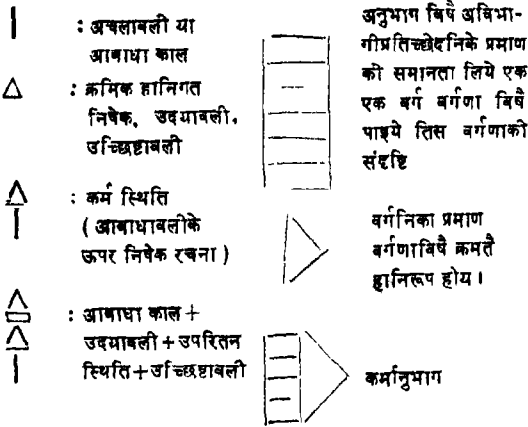 : अचलावली या
आबाधा काल
: क्रमिक हानिगत
निषेक, उदयावली,
उच्छिष्टावली
: कर्म स्थिति
( आबाधावलीके
ऊपर निषेक रचना )
: आबाधा काल +
उदयावली + उपरितन
स्थिति + उच्छिष्टावली
अनुभाग बिषै अविभा-
गीप्रतिच्छेदनिके प्रमाण
की समानता लिये एक
एक बर्ग बर्गणा बिषै
पाइये तिस वर्गणाको
संदृष्टि
वर्गनिका प्रमाण
बर्गणाविषै क्रमतै
हानिरूप होय ।
कर्मानुभाग